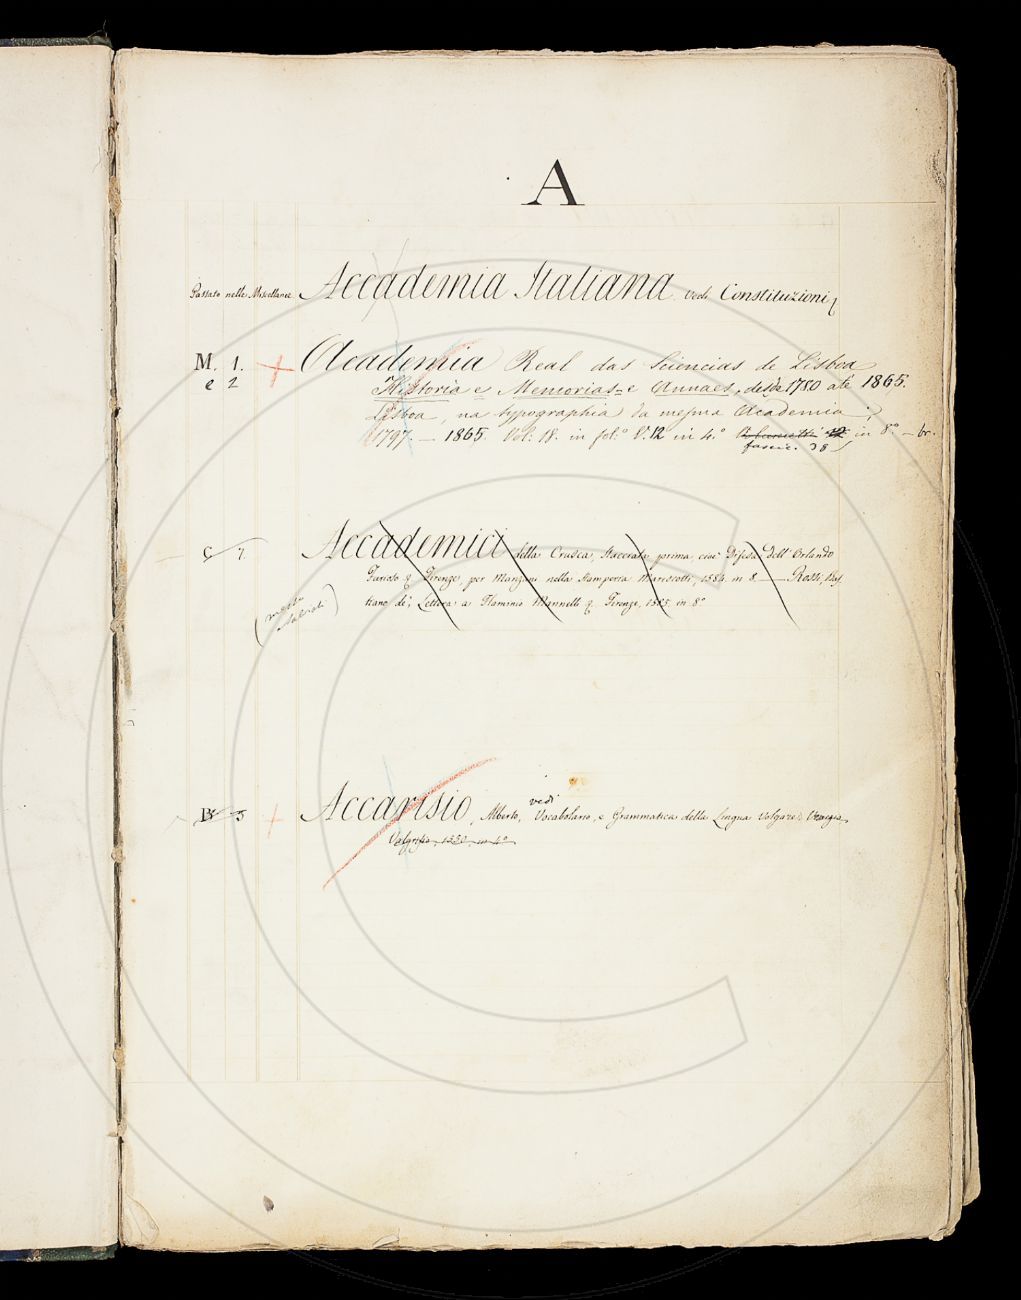 A
Passato nelle Miscellanee Accademia Italiana vedi Constituzioni
M. 1. + Academia Real das Sciencias de Lisboa
e 2 Historia e Memorias e Annaes, desde 1780 até 1865.
Lisboa, na typographia da mesma Academia
1797. — 1865. Vol: 18. in fol.º V. 12 in 4.º in 8.º — br.
fascic. 38
C 7 Accademici della Crusca, Staccata prima, cioè Difesa dell' Orlando
Furioso &. Firenze, per Manzani nella Stamperia Mariscotti, 1584. in 8. — Rossi, Bas
tiano de', Lettera a Flaminio Mannelli &. Firenze, 1585. in 8º
(messa
Salviati)
vedi
B 5 + Accarisio, Alberto, Vocabolario, e Grammatica della Lingua Volgare. Venezia
Valgrisio, 1550, in 4º